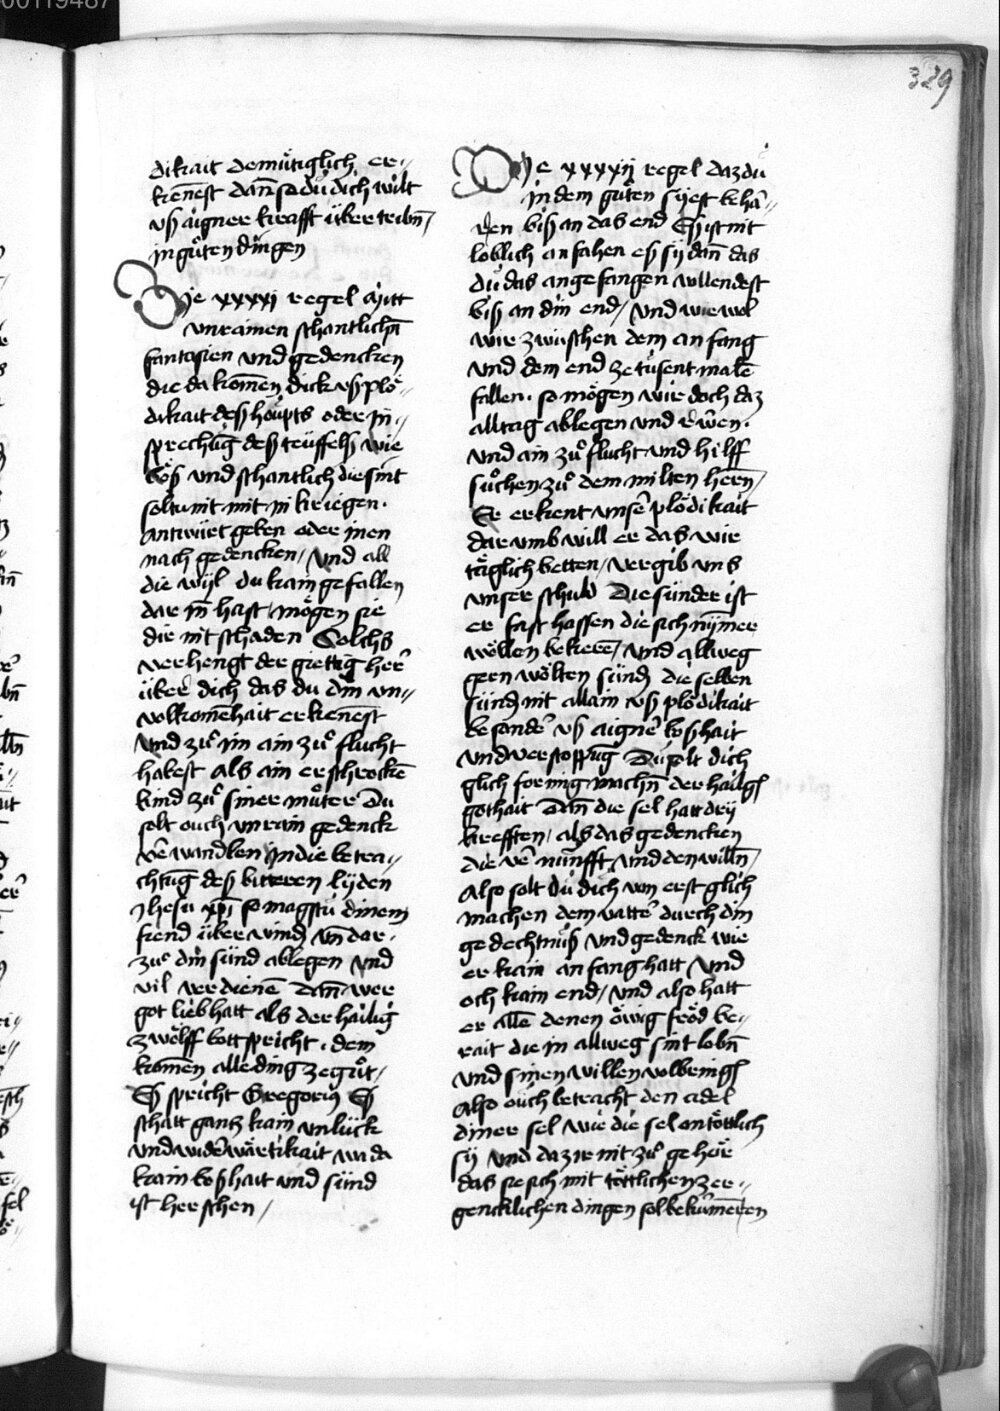 329
dikait demuͤtiglich er„
kenēst dañ so du dich wilt
vß aigner krafft über tribn̄
in guͦten dingen
Die xxxxi regel ayitt
vnrainen schantlichn̄
fantasien vnd gedencken
die da komēn dick vß ploͤ„
dikait deß houpts oder in„
sprechūg deß teüffels wie
boͤß vnd schantlich die sint
soltu nit mit in kriegen.
antwürt geben oder inen
nach gedencken / vnd all
die wijl du kain gefallen
dar in̄ hast / moͤgen sie
dir nit schaden Solchs
verhengt der guettig her̄
über dich das du din vn„
volkomēhait erkenēst
vnd zuͦ im ain zuͦ flucht
habest als ain erschrockē
kind zuͦ siner muͦter Du
solt ouch vnrain gedenck
v̄wandlen in die betra„
chtūg deß bitteren lyden
Jhesu xp̄i so magstu dinem
fiend über wind̄ vn̄ dar.
zuͦ din sünd ablegen vnd
vil verdienē Dañ wer
got lieb hatt als der hailig
zwoͤlff bott spricht. dem
komēn alle ding ze guͦt /
Eß spricht Gregoriꝰ Eß
schatt gantz kain vnlück
vnd wid̄waͤrtikait wa da
kain boßhait vnd sünd
ist herschen /
Die xxxxij regel daz du
in dem guͦten syest behā„
den biß an das end Eß ist nit
loblich an fahen eß sij dañ das
du das angefangen vollendest
biß an din end / vnd wie wol
wir zwüschen dem anfang
vnd dem end ze tusent malē
fallen. so moͤgen wir doch daz
alltag ablegen vnd rüwen.
vnd ain zuͦ flucht vnd hilff
suͦchen zuͦ dem milten herrn /
Er erkent vnser̄ ploͤdikait
dar vmb will er das wir
taͤglich betten / vergib vns
vnser schuld Die sünder ist
er fast hassen die sich nȳmer
woͤllen bekerē / vnd allweg
gern woͤlten sünd̄ die selben
sünd̄ nit allain vß ploͤdikait
besonder̄ vß aigner̄ boßhait
vnd verstopfūg Du solt dich
glich formig machn̄ der hailgn̄
gothait Dañ die sel hat drij
krefften / als das gedencken
die v̄nunfft / vnd den willn̄ /
Also solt du dich von erst glich
machen dem vatter̄ durch din
gedechtnuß vnd gedenck wie
er kain anfang hatt vnd
och kain end / vnd also hatt
er allē denen oͤwig froͤd be„
rait die in allweg sint lobn̄
vnd sinen willen volbringn̄
Also ouch betracht den adel
diner sel wie die sel ontoͤttlich
sij vnd daz ir nit zuͦ gehoͤr
das sie sich mit toͤttlichen zer„
gencklichen dingen sol bekümeren